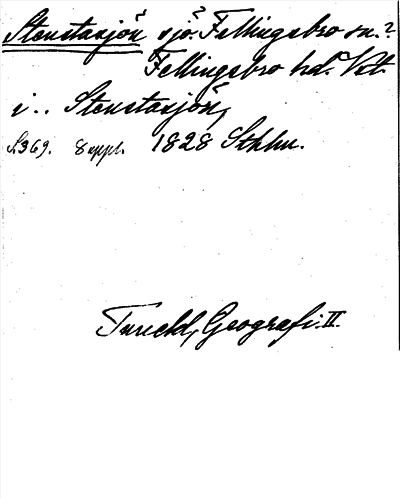 Stenstasjön sjö? Fellingsbro sn.?
Fellingsbro hd. Vstl.
i .. Stenstasjön,
S. 369. 8 uppl. 1828 Sthlm.
Tuneld, Geografi. II.